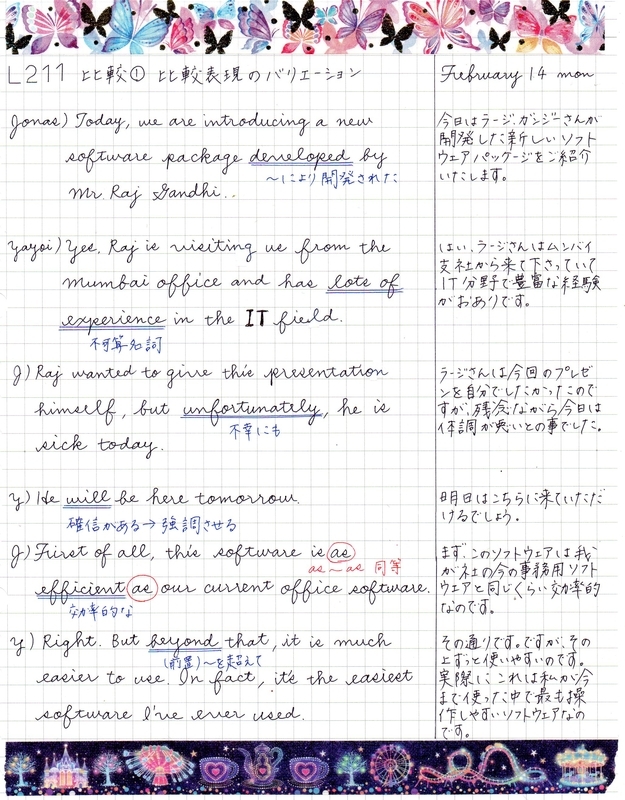 L211 比較① 比較表現のバリエーション
February 14 mon
Jonas) Today, we are introducing a new
software package developed by
〜により開発された
Mr. Raj Gandhi..
今日はラージ・ガンジーさんが
開発した新しいソフト
ウェアパッケージをご紹介
いたします。
Yayoi) Yes. Raj is visiting us from the
Mumbai office and has lots of
experience in the IT field.
不可算名詞
はい、ラージさんはムンバイ
支社から来て下さっていて
IT分野で豊富な経験
がおありです。
J) Raj wanted to give this presentation
himself, but unfortunately, he is
不幸にも
sick today.
ラージさんは今回のプレゼ
ンを自分でしたかったので
すが、残念ながら今日は
体調が悪いとの事でした。
Y) He will be here tomorrow.
確信がある→強調させる
明日はこちらに来ていただ
けるでしょう。
J) First of all, this software is as
as 〜 as 同等
efficient as our current office software.
効率的な
まず、このソフトウェアは我
が社の今の事務用ソフト
ウェアと同じくらい効率的
なのです。
Y) Right. But beyond that, it is much
(前置)〜を超えて
easier to use. In fact, it's the easiest
software I've ever used.
その通りです。ですが、その
上ずっと使いやすいのです。
実際に、これは私が今
まで使った中で最も操
作しやすいソフトウェアなの
です。